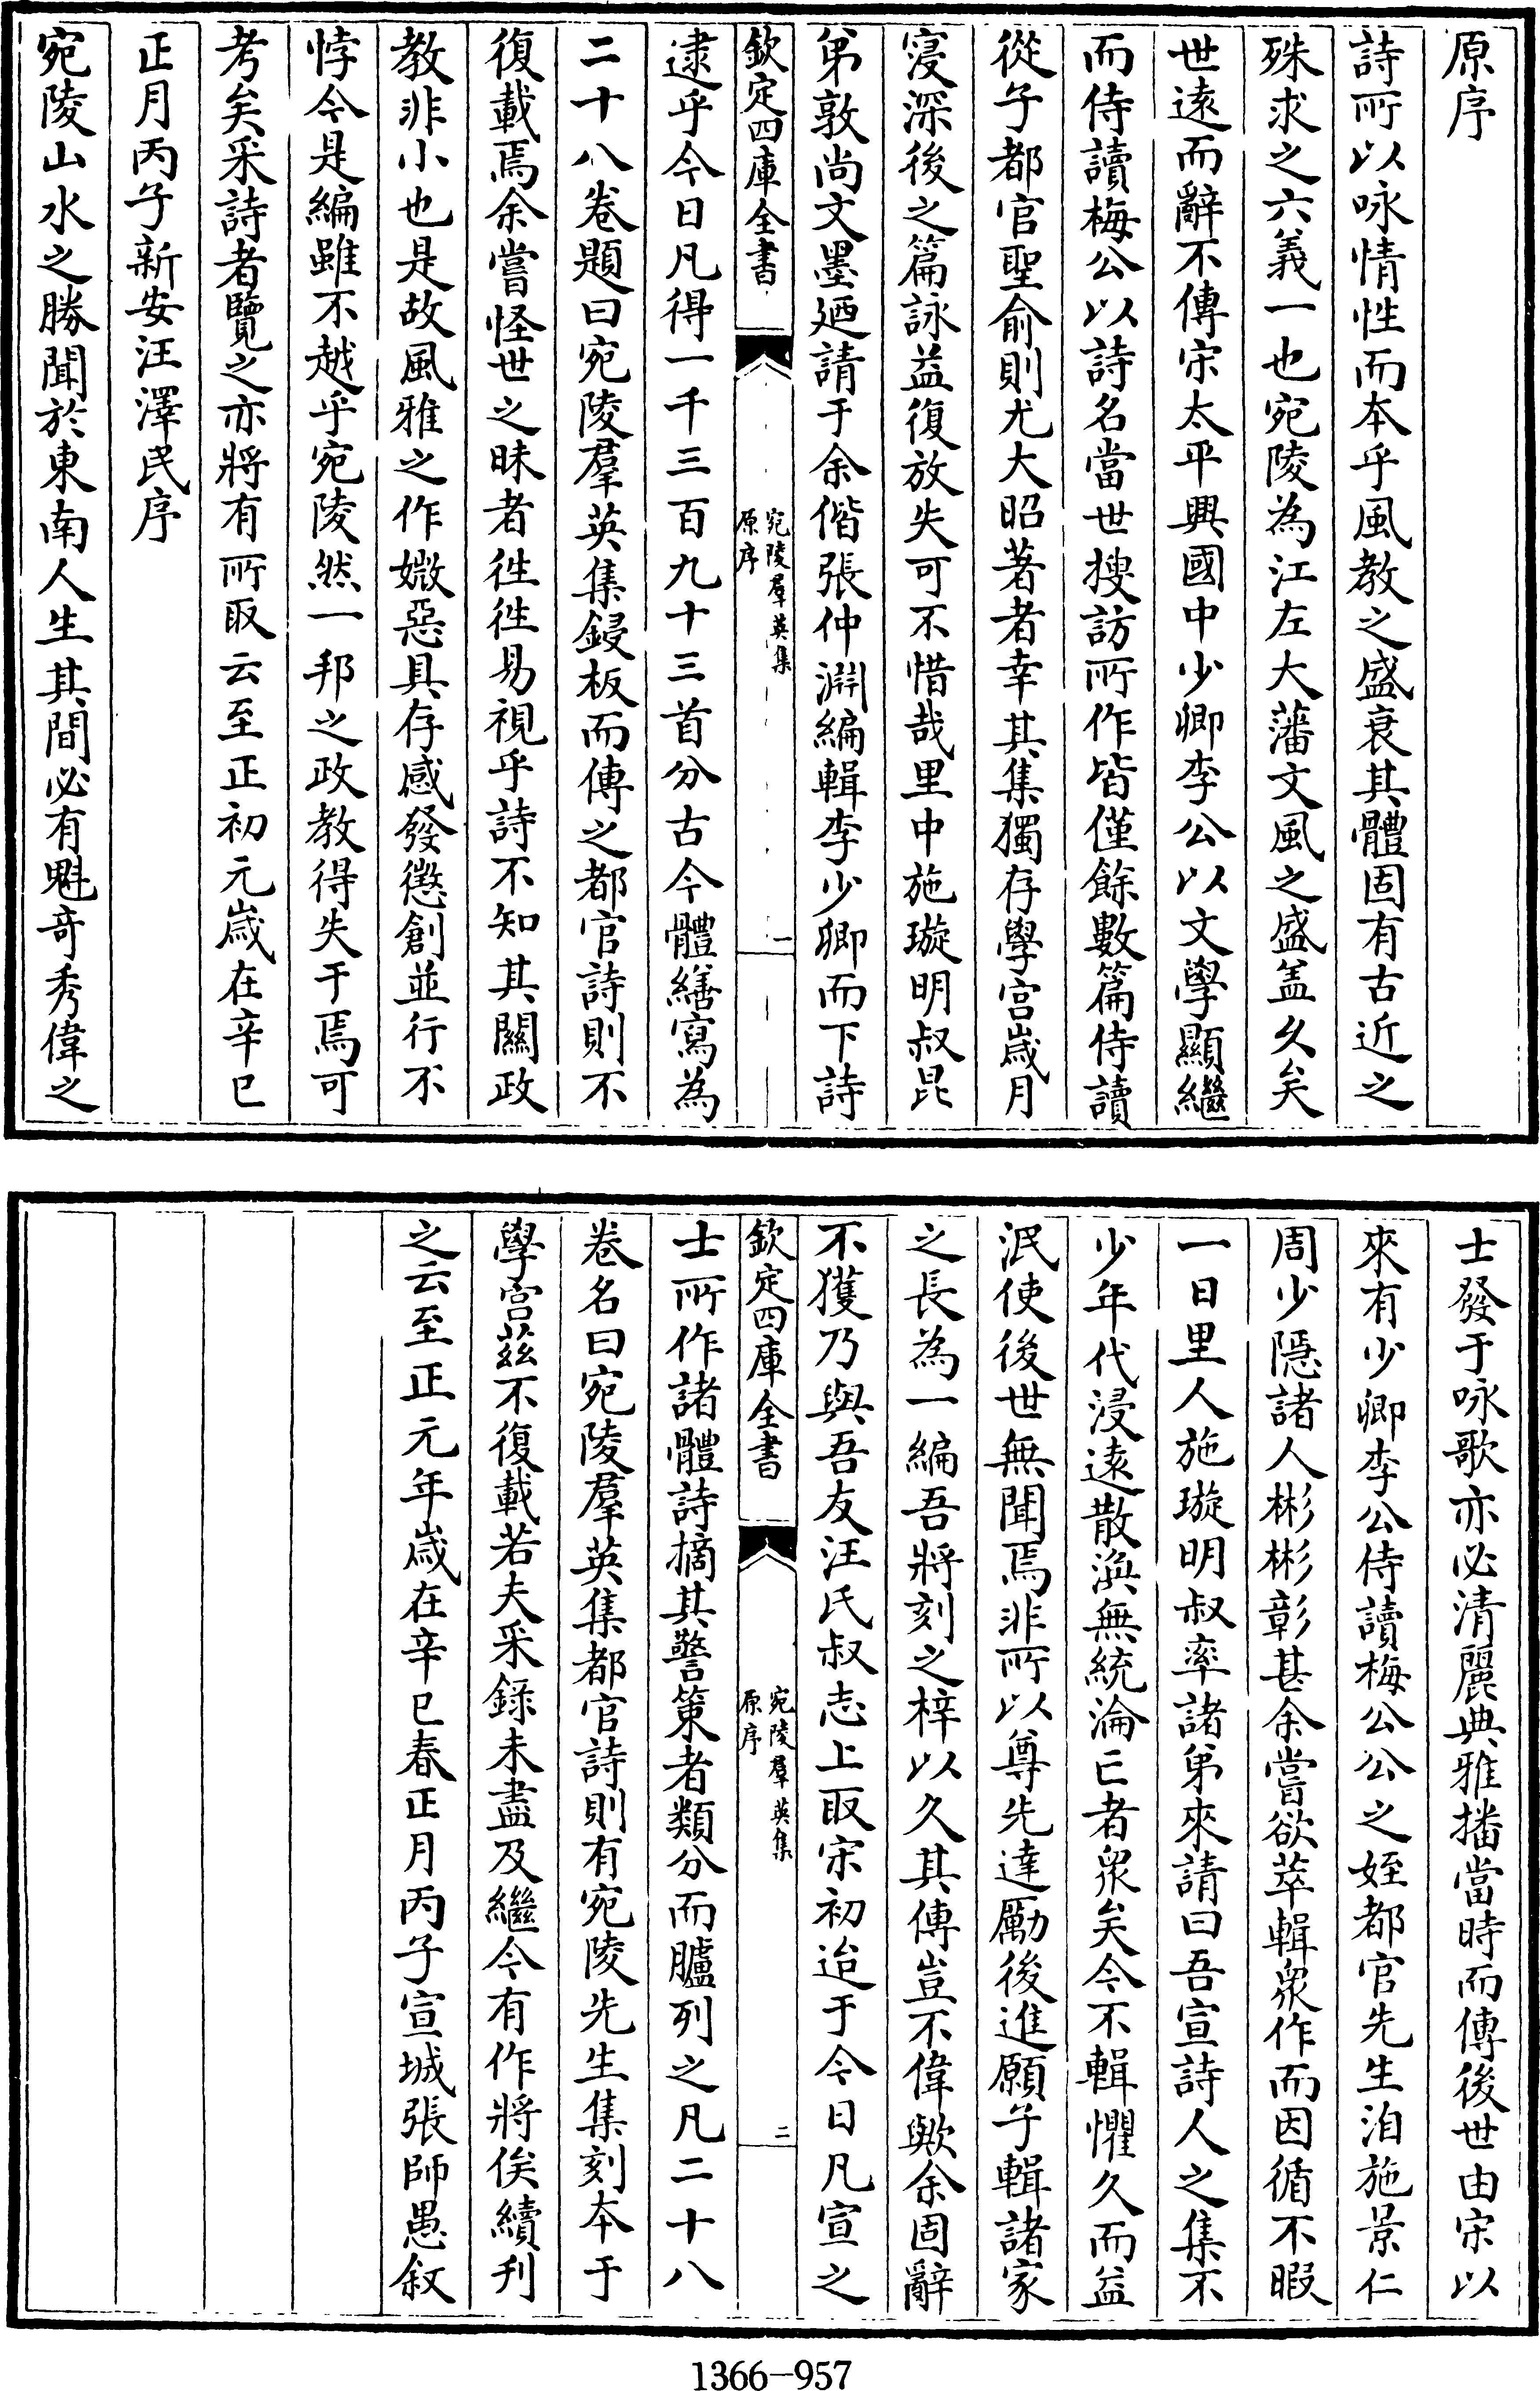 原序
詩所以咏情性而本乎風教之盛衰其體固有古近之
殊求之六義一也宛陵為江左大藩文風之盛盖久矣
世遠而辭不傳宋太平興國中少卿李公以文學顯繼
而侍讀梅公以詩名當世搜訪所作皆僅餘數篇侍讀
從子都官聖俞則尤大昭著者幸其集獨存學宫嵗月
寖深後之篇詠益復放失可不惜哉里中施璇明叔昆
弟敦尚文墨廼請于余偕張仲淵編輯李少卿而下詩
欽定四庫全書
宛陵羣英集
原序
一
逮乎今日凡得一千三百九十三首分古今體繕寫為
二十八卷題曰宛陵羣英集鋟板而傳之都官詩則不
復載焉余嘗怪世之昧者徃徃易視乎詩不知其關政
教非小也是故風雅之作媺惡具存感發懲創並行不
悖今是編雖不越乎宛陵然一邦之政教得失于焉可
考矣采詩者覽之亦將有所取云至正初元嵗在辛巳
正月丙子新安汪澤民序
宛陵山水之勝聞於東南人生其間必有魁竒秀偉之
士發于咏歌亦必清麗典雅播當時而傳後世由宋以
來有少卿李公侍讀梅公公之姪都官先生洎施景仁
周少隱諸人彬彬彰甚余嘗欲萃輯衆作而因循不暇
一日里人施璇明叔率諸弟來請曰吾宣詩人之集不
少年代浸遠散渙無統淪亡者衆矣今不輯懼久而益
泯使後世無聞焉非所以尊先達勵後進願子輯諸家
之長為一編吾將刻之梓以久其傳豈不偉歟余固辭
不獲乃與吾友汪氏叔志上取宋初迨于今日凡宣之
欽定四庫全書
宛陵羣英集
原序
二
士所作諸體詩摘其警策者類分而臚列之凡二十八
卷名曰宛陵羣英集都官詩則有宛陵先生集刻本于
學宫茲不復載若夫采錄未盡及繼今有作將俟續刋
之云至正元年嵗在辛巳春正月丙子宣城張師愚敘
1366-957